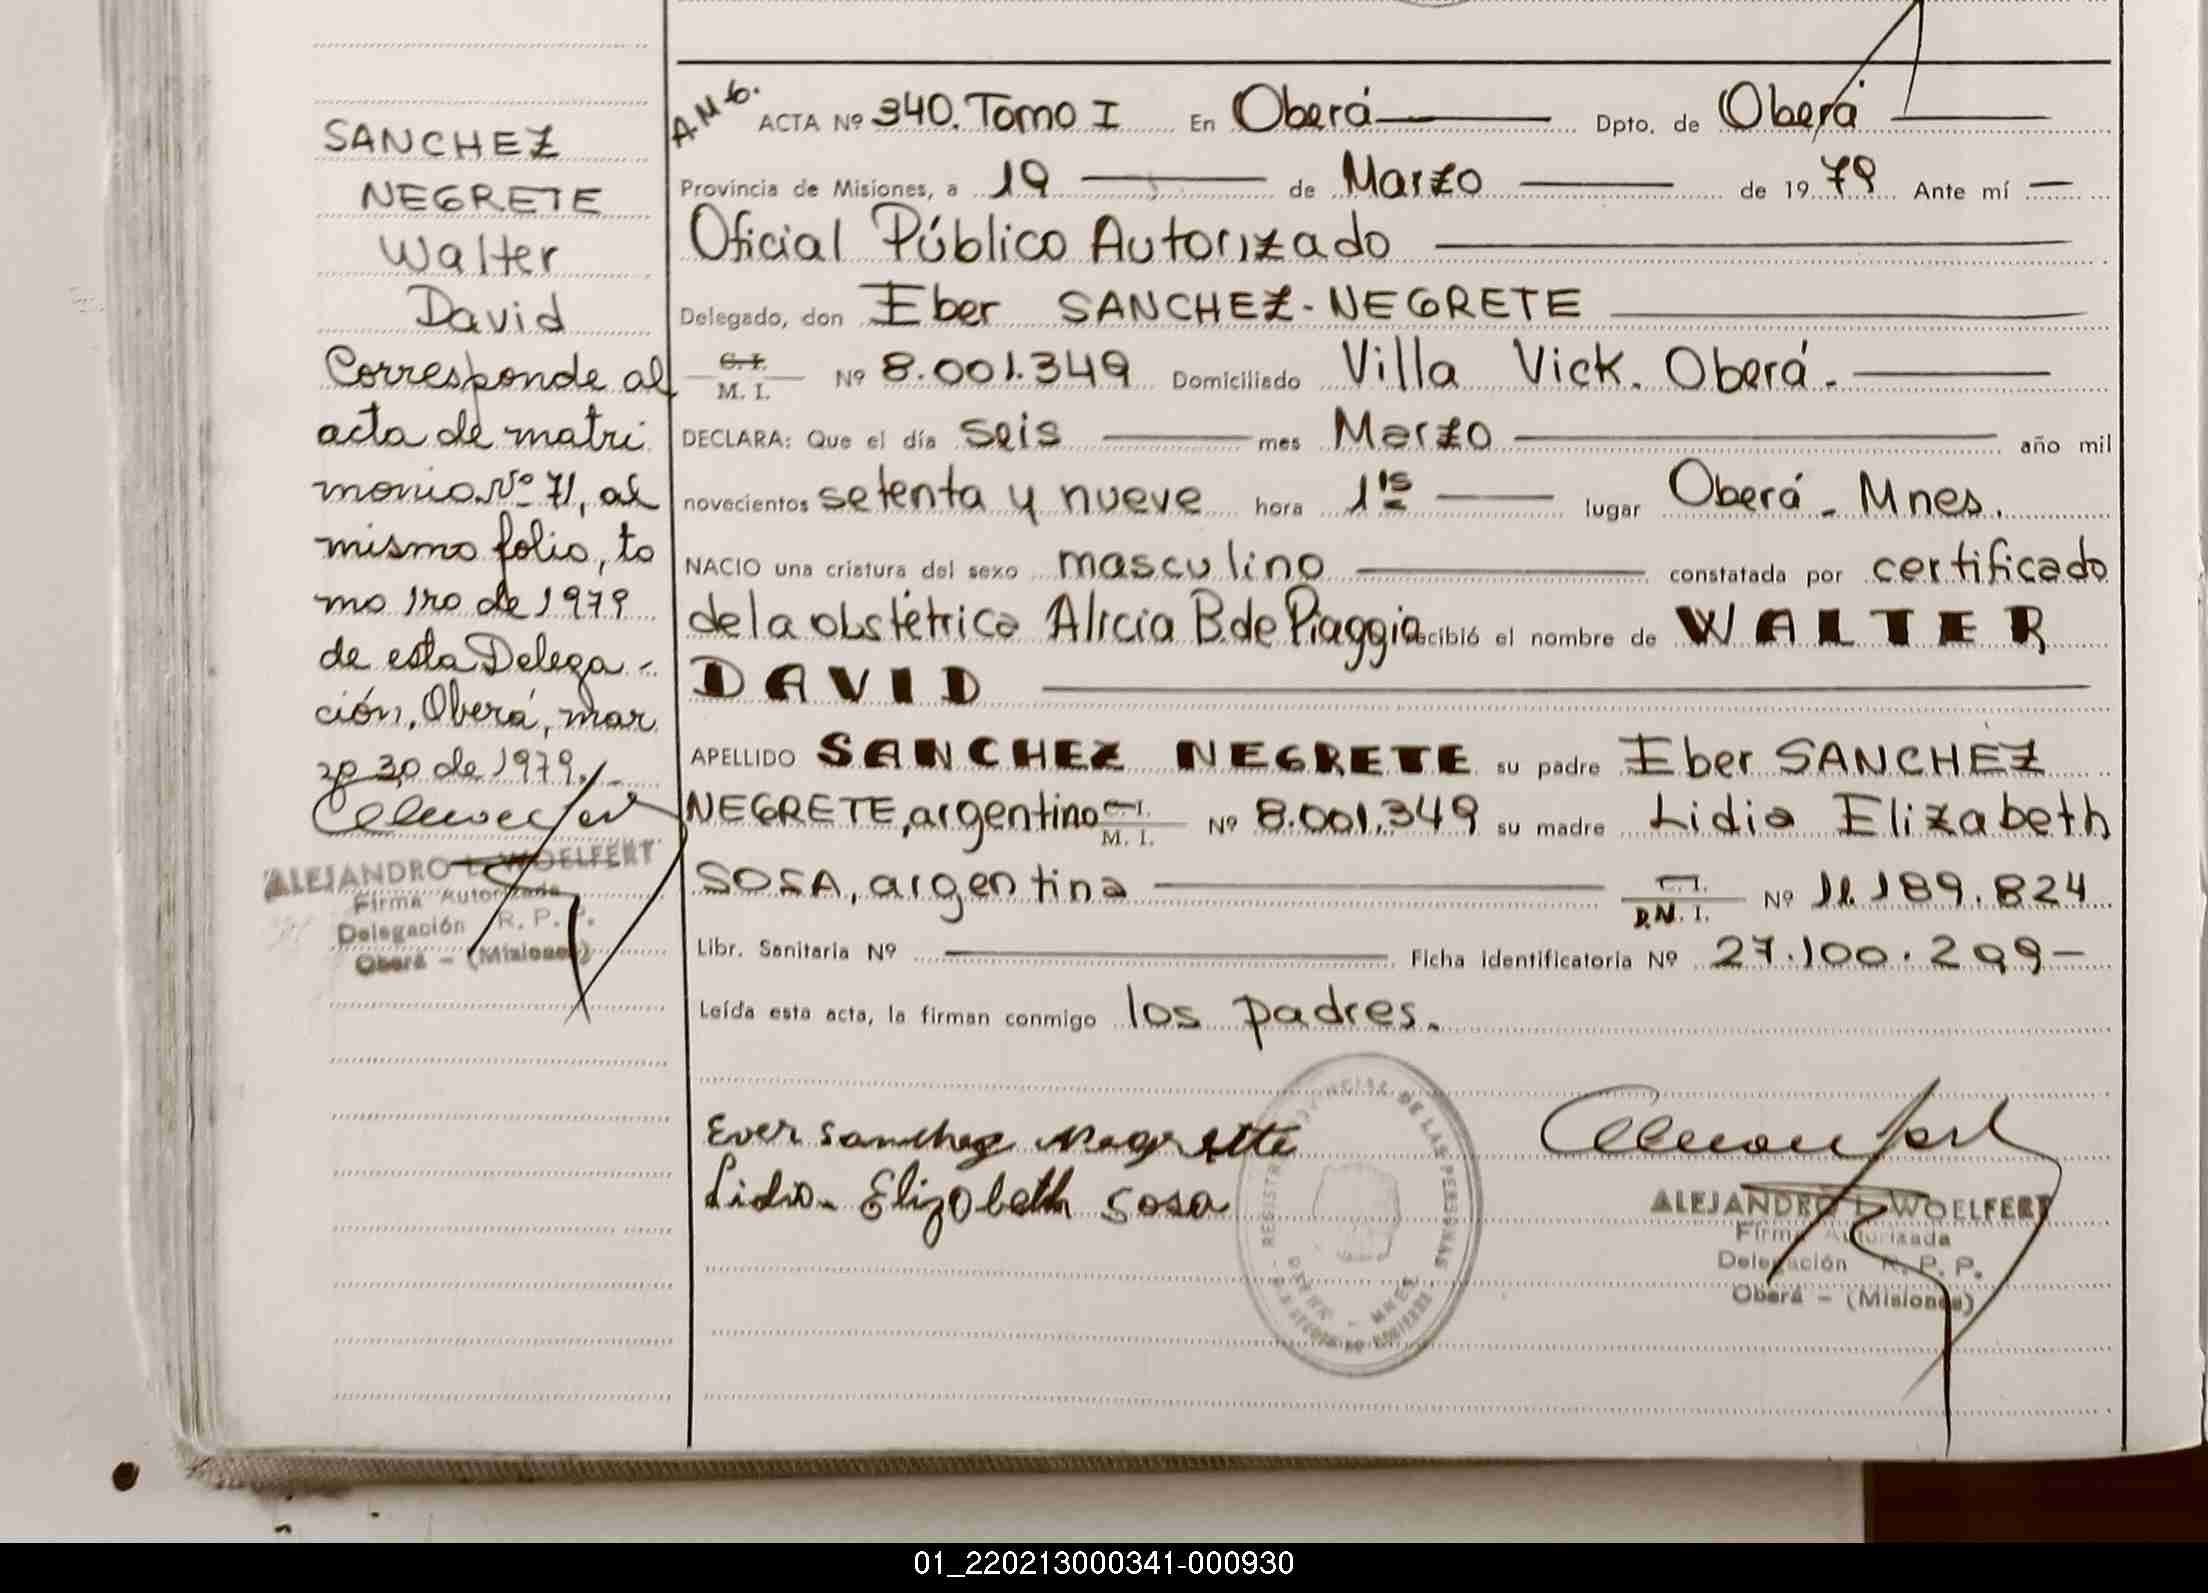 SANCHEZ
NEGRETE
Walter
David
Corresponde al
acta de matri
monio Nº 71, al
mismo folio, to
mo 1ro de 1979
de esta Delega-
ción, Oberá, mar
zo 30 de 1979.
ALEJANDRO L. WOELFERT
Firma Autorizada
Delegación R. P. P.
Oberá - (Misiones)
A.M.6. ACTA Nº 340. Tomo I En Oberá Dpto. de Oberá
Provincia de Misiones, a 19 de Marzo de 1979 Ante mí
Oficial Público Autorizado
Delegado, don Eber SANCHEZ-NEGRETE
C. I. M. I. Nº 8.001.349 Domiciliado Villa Vick. Oberá.
DECLARA: Que el día seis mes Marzo año mil
novecientos setenta y nueve hora 1 15 lugar Oberá - Mnes.
NACIO una criatura del sexo masculino constatada por certificado
de la obstétrica Alicia B. de Piaggio recibió el nombre de WALTER
DAVID
APELLIDO SANCHEZ NEGRETE su padre Eber SANCHEZ
NEGRETE, argentino C. I. M. I. Nº 8.001.349 su madre Lidia Elizabeth
SOSA, argentina C. I. D.N. I. Nº 11.189.824
Libr. Sanitaria Nº Ficha identificatoria Nº 27.100.299-
Leída esta acta, la firman conmigo los padres.
Ever Sanchez Negrette
Lidia Elizabeth Sosa
REGISTRO PROVINCIAL DE LAS PERSONAS
ALEJANDRO L. WOELFERT
Firma Autorizada
Delegación R. P. P.
Oberá - (Misiones)
01_220213000341-000930